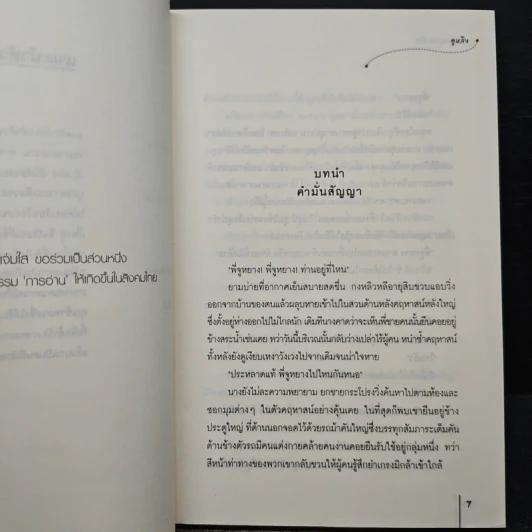 แจ่มใส ขอร่วมเป็นส่วนหนึ่ง
รรม 'การอ่าน' ให้เกิดขึ้นในสังคมไทย
คู่แค้น
บทนำ
คำมั่นสัญญา
"พี่จูหยาง! พี่จูหยาง! ท่านอยู่ที่ไหน"
ยามบ่ายที่อากาศเย็นสบายสดชื่น กงหลิวหลีอายุสิบขวบแอบวิ่ง
ออกจากบ้านของตนแล้วผลุบหายเข้าไปในสวนด้านหลังคฤหาสน์หลังใหญ่
ซึ่งตั้งอยู่ห่างออกไปไม่ไกลนัก เดิมทีนางคาดว่าจะเห็นพี่ชายคนนั้นยืนคอยอยู่
ข้างสระน้ำเช่นเคย ทว่าวันนี้บริเวณนั้นกลับว่างเปล่าไร้ผู้คน หนำซ้ำคฤหาสน์
ทั้งหลังยังดูเงียบเหงาวังเวงไปจากเดิมจนน่าใจหาย
"ประหลาดแท้ พี่จูหยางไปไหนกันหนอ"
นางยังไม่ละความพยายาม ยกชายกระโปรงวิ่งค้นหาไปตามห้องและ
ซอกมุมต่างๆ ในตัวคฤหาสน์อย่างคุ้นเคย ในที่สุดก็พบเขายืนอยู่ข้าง
ประตูใหญ่ ที่ด้านนอกจอดไว้ด้วยรถม้าคันใหญ่ซึ่งบรรทุกสัมภาระเต็มคัน
ด้านข้างตัวรถมีคนแต่งกายคล้ายคนงานคอยยืนรับใช้อยู่กลุ่มหนึ่ง ทว่า
สีหน้าท่าทางของพวกเขากลับชวนให้ผู้คนรู้สึกยำเกรงมิกล้าเข้าใกล้
7